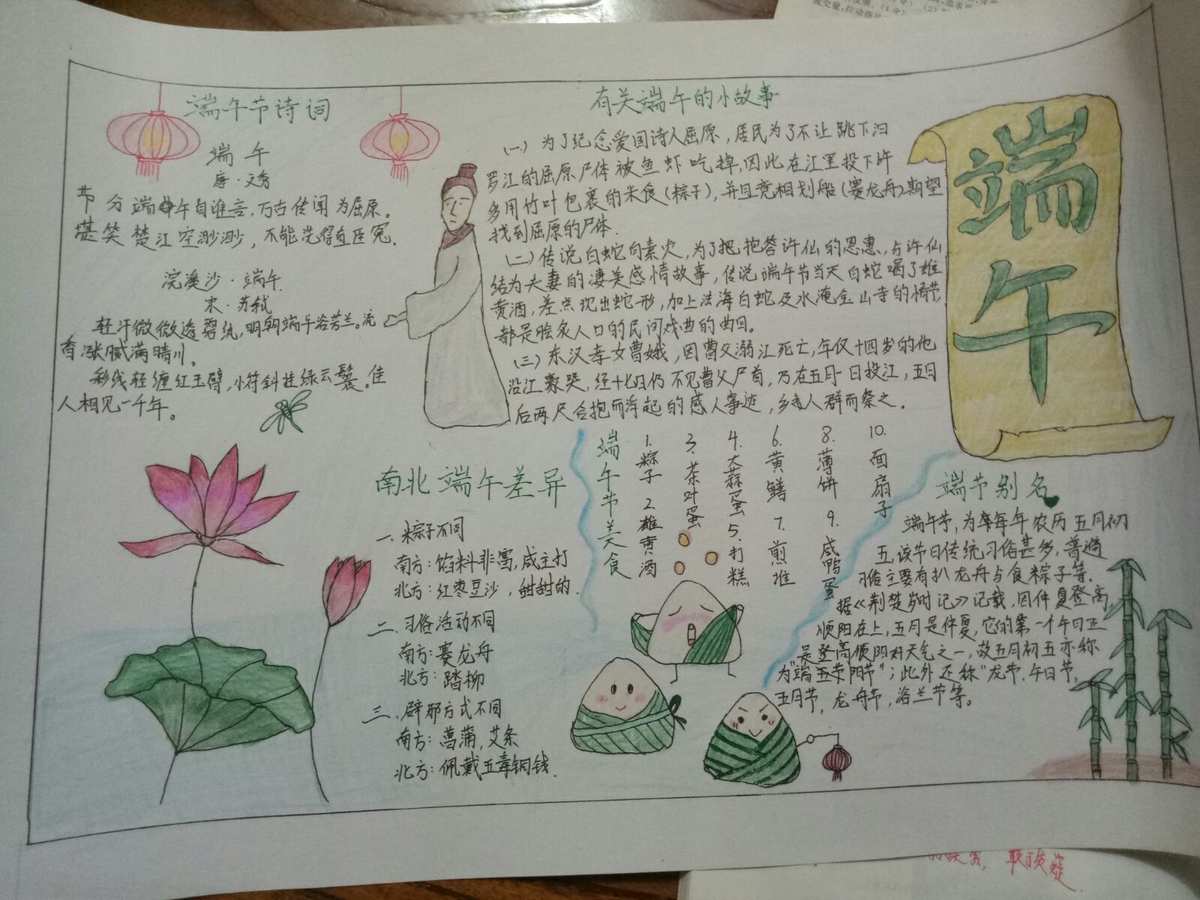 端午节诗词
端午
唐·文秀
节分端午自谁言,万古传闻为屈原。
堪笑楚江空渺渺,不能洗得直臣冤.
浣溪沙·端午
宋·苏轼
轻汗微微透碧纨,明朝端午浴芳兰。流
香涨腻满晴川。
彩线轻缠红玉臂,小符斜挂绿云鬟。佳
人相见一千年。
有关端午的小故事
(一)为了纪念爱国诗人屈原,居民为了不让跳下汨
罗江的屈原尸体被鱼虾吃掉,因此在江里投下许
多用竹叶包裹的米食(粽子),并且竞相划船(赛龙舟)期望
找到屈原的尸体.
(二)传说白蛇白素贞,为了把报答许仙的恩惠,与许仙
结为夫妻的凄美感情故事,传说端午节当天白蛇喝了雄
黄酒,差点现出蛇形,加上法海白蛇及水淹金山寺的情节
都是脍炙人口的民间戏曲的曲目。
(三)东汉孝女曹娥,因曹父溺江死亡,年仅十四岁的他
沿江豪哭,经十七日仍不见曹父尸首,乃在五月一日投江,五日
后两尺合抱而浮起的感人事迹,乡人群而祭之.
端午
南北端午差异
一.粽子不同
南方:馅料丰富,咸主打
北方:红枣豆沙,甜甜的.
二.习俗活动不同
南方:赛龙舟
北方:踏柳
三.辟邪方式不同
南方:菖蒲,艾条
北方:佩戴五毒铜钱.
端午节美食
1.粽子 2.雄黄酒
3.茶叶蛋
4.大蒜蛋 5.打糕
6.黄鳝 7.煎堆
8.薄饼 9.咸鸭蛋
10.面扇子
端节别名
端午节,为每年农历五月初
五,该节日传统习俗甚多,普遍
习俗主要有扒龙舟与食粽子等.
据《荆楚岁时记》记载,因仲夏登高
顺阳在上,五月是仲夏,它的第一个午日正
是登高顺阳好天气之一,故五月初五亦称
为"端五荣阳节";此外还称"龙节,午日节,
五月节,龙舟节,浴兰节等。